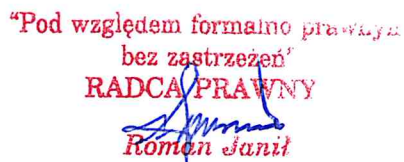 "Pod względem formalno prawnym
bez zastrzeżeń"
RADCA PRAWNY
Roman Janił